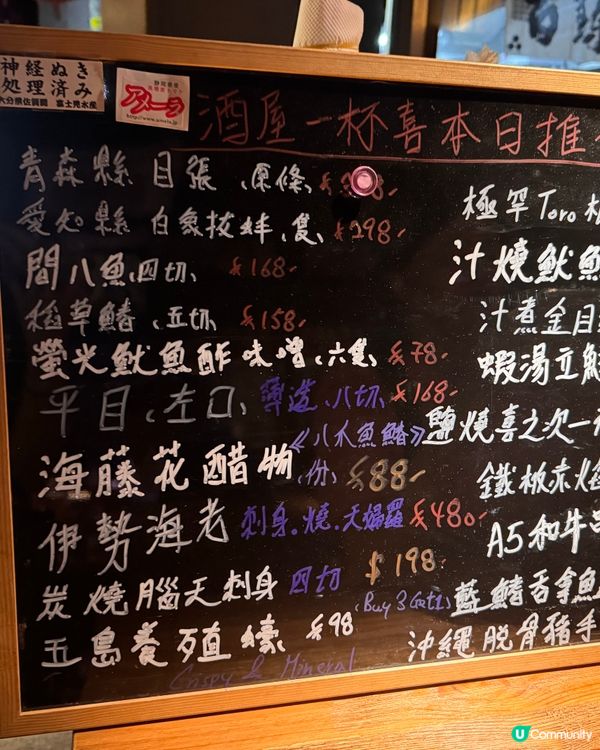 神経ぬき
処理済み
大分県佐賀関 富士見水産
静岡県産
アメーラ
http://www.amela.jp
酒屋一杯喜本日推
青森縣 目張（原條）
愛知縣 白象拔蚌（隻）$298
間八魚（四切）$168
稻草鰆（五切）$158
螢光魷魚酢味噌（六隻）$78
平目（左口）薄造（八切）$168
海藤花醋物（份）$88
《八爪魚鰆》
伊勢海老 刺身。燒。天婦羅 $480
炭燒腦天刺身 四切 $198
五島養殖蠔 $98
(Buy 3 Get 1)
Crispy & Mineral
極罕Toro
汁燒魷魚
汁煮金目
蝦湯立
鹽燒喜之次一
鐵板赤
A5和牛
藍鰭吞拿魚
沖繩脫骨豬手
U Community